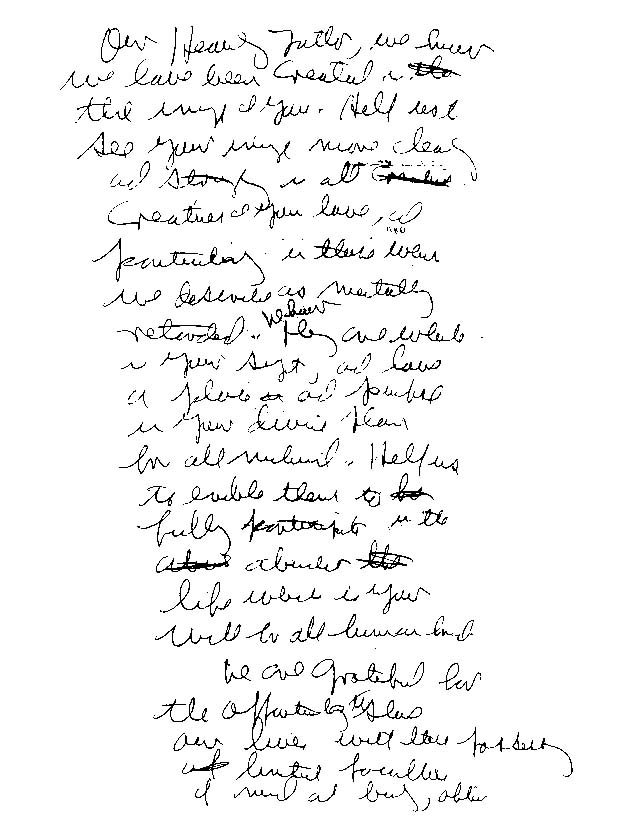 Our Heavenly Father, we know
we have been created in the
the image of You. Help us to
see your image more clearly
and strongly in all
Creatures of you have, and
particularly in those whom
we describe as mentally
retarded. We know they are whole
in your sight, and have
a place in and purpose
in your divine plan
for all mankind. Help us
to enable them to be
fully participate in the
abundant the
life which is your
will for all human kind
We are grateful for
the opportunity to share
our lives with those possessing
of limited faculties
of mind and body, often